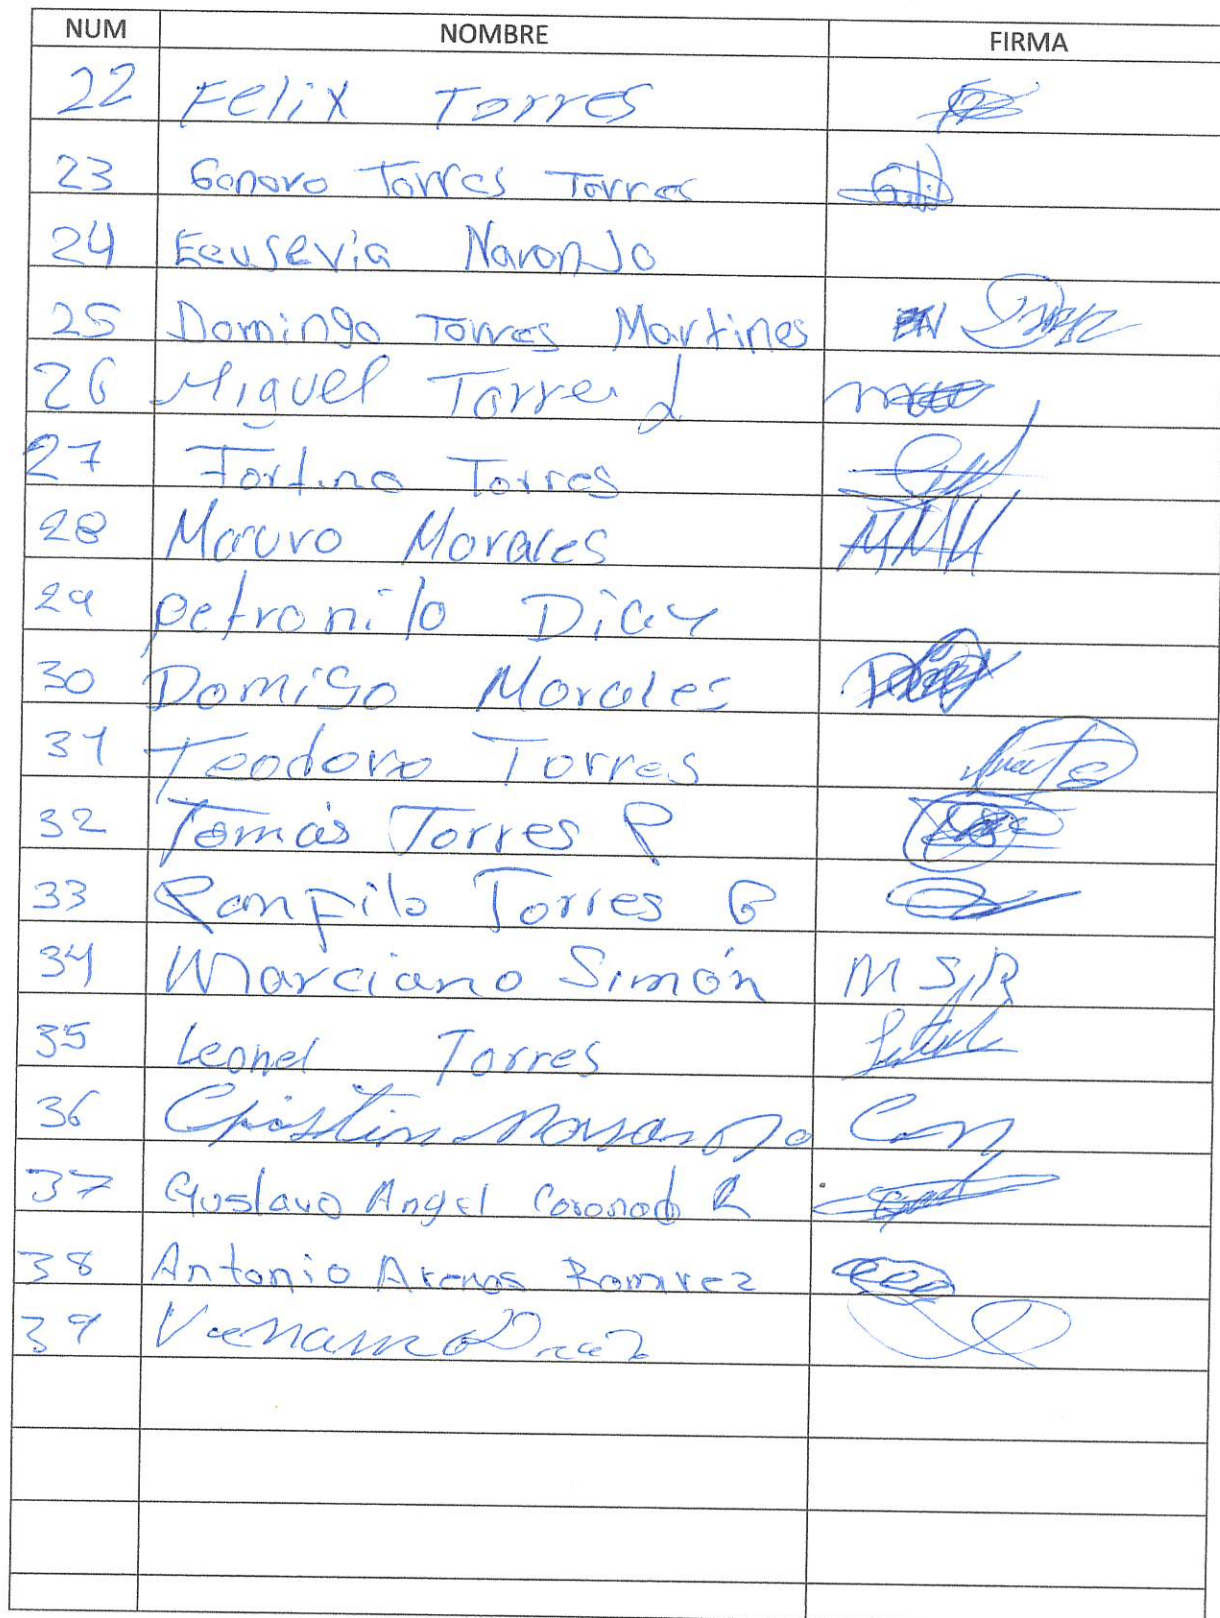 NUM NOMBRE FIRMA
22 Felix Torres
23 Genaro Torres Torres
24 Eeusevia Naranjo
25 Domingo Torres Martines
26 Miguel Torres L
27 Fortino Torres
28 Mauro Morales
29 petronilo Diaz
30 Domigo Morales
31 Teodoro Torres
32 Tomás Torres P
33 Panfilo Torres G
34 Marciano Simón M S R
35 Leonel Torres
36 Cristin Naranjo
37 Gustavo Angel Coronado R
38 Antonio Arenas Ramirez
39 Diaz